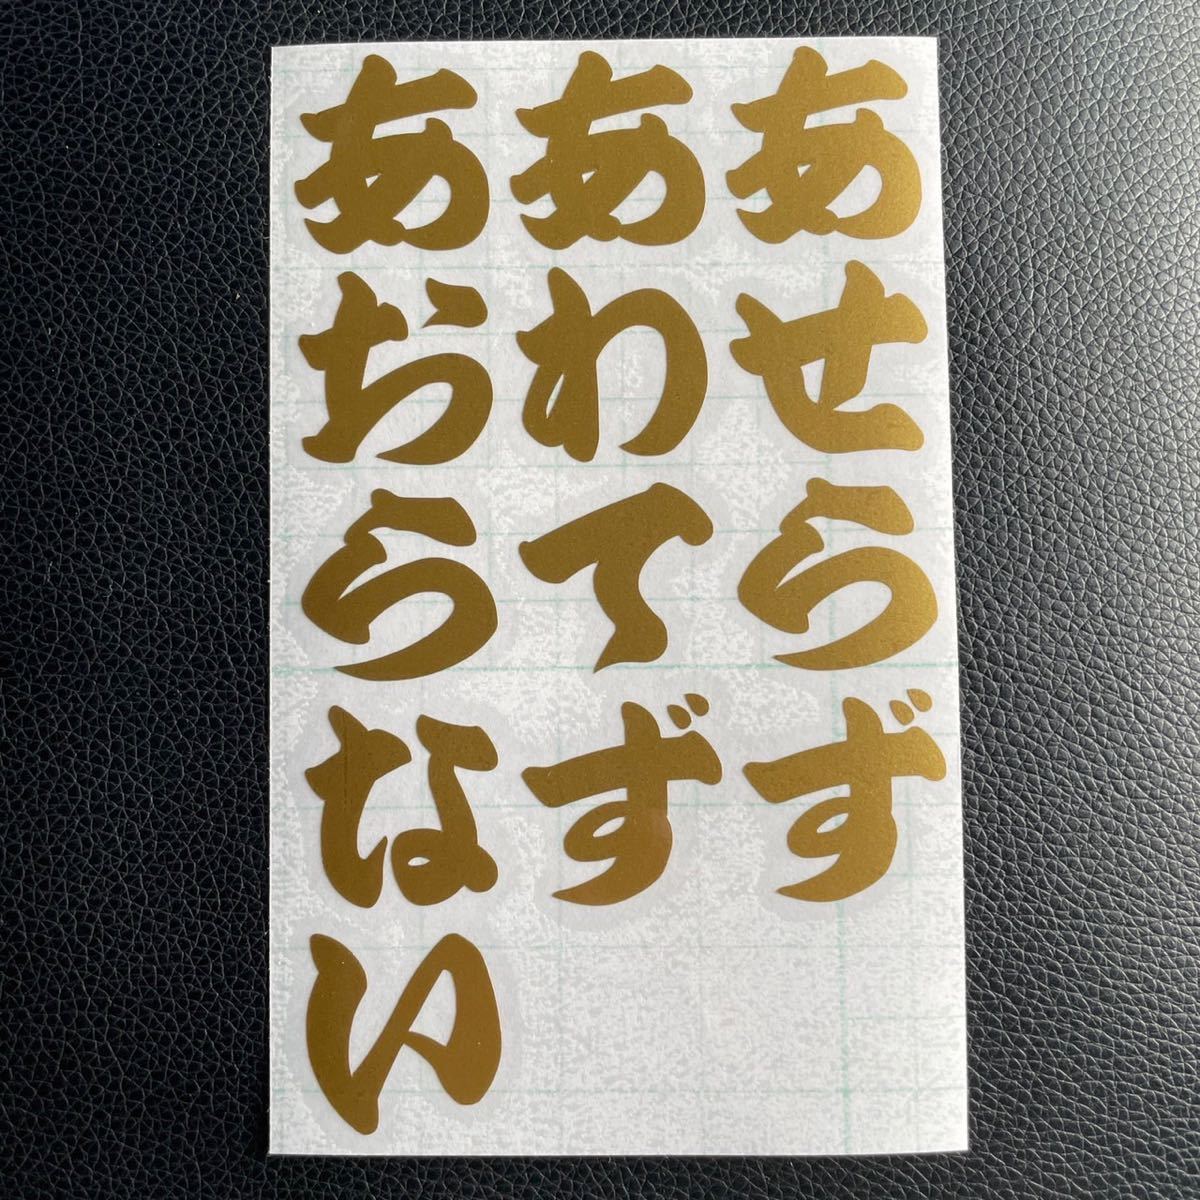 あせらず
あわてず
あおらない